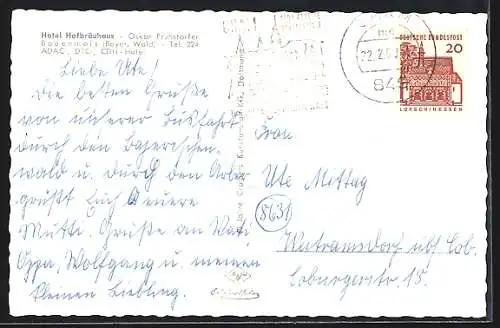 Hotel Hofbräuhaus - Oskar Pruhstorfer
Bodenmais (Bayer. Wald) - Tel. 224
ADAC, DTC, CDH-Hotel
Liebe Ute!
Die besten Grüße
von unserer Busfahrt
durch den Bayerischen-
wald u. durch den Arber
grüßt Euch Eure
Mutti. Grüße an Vati,
Oppa, Wolfgang u. meinen
kleinen Liebling.
22.2.6
DEUTSCHE BUNDESPOST
20
LORSCH/HESSEN
Frau
Ute Mittag
8631
Weitramsdorf üb/ Cob.
Coburgerstr. 15.